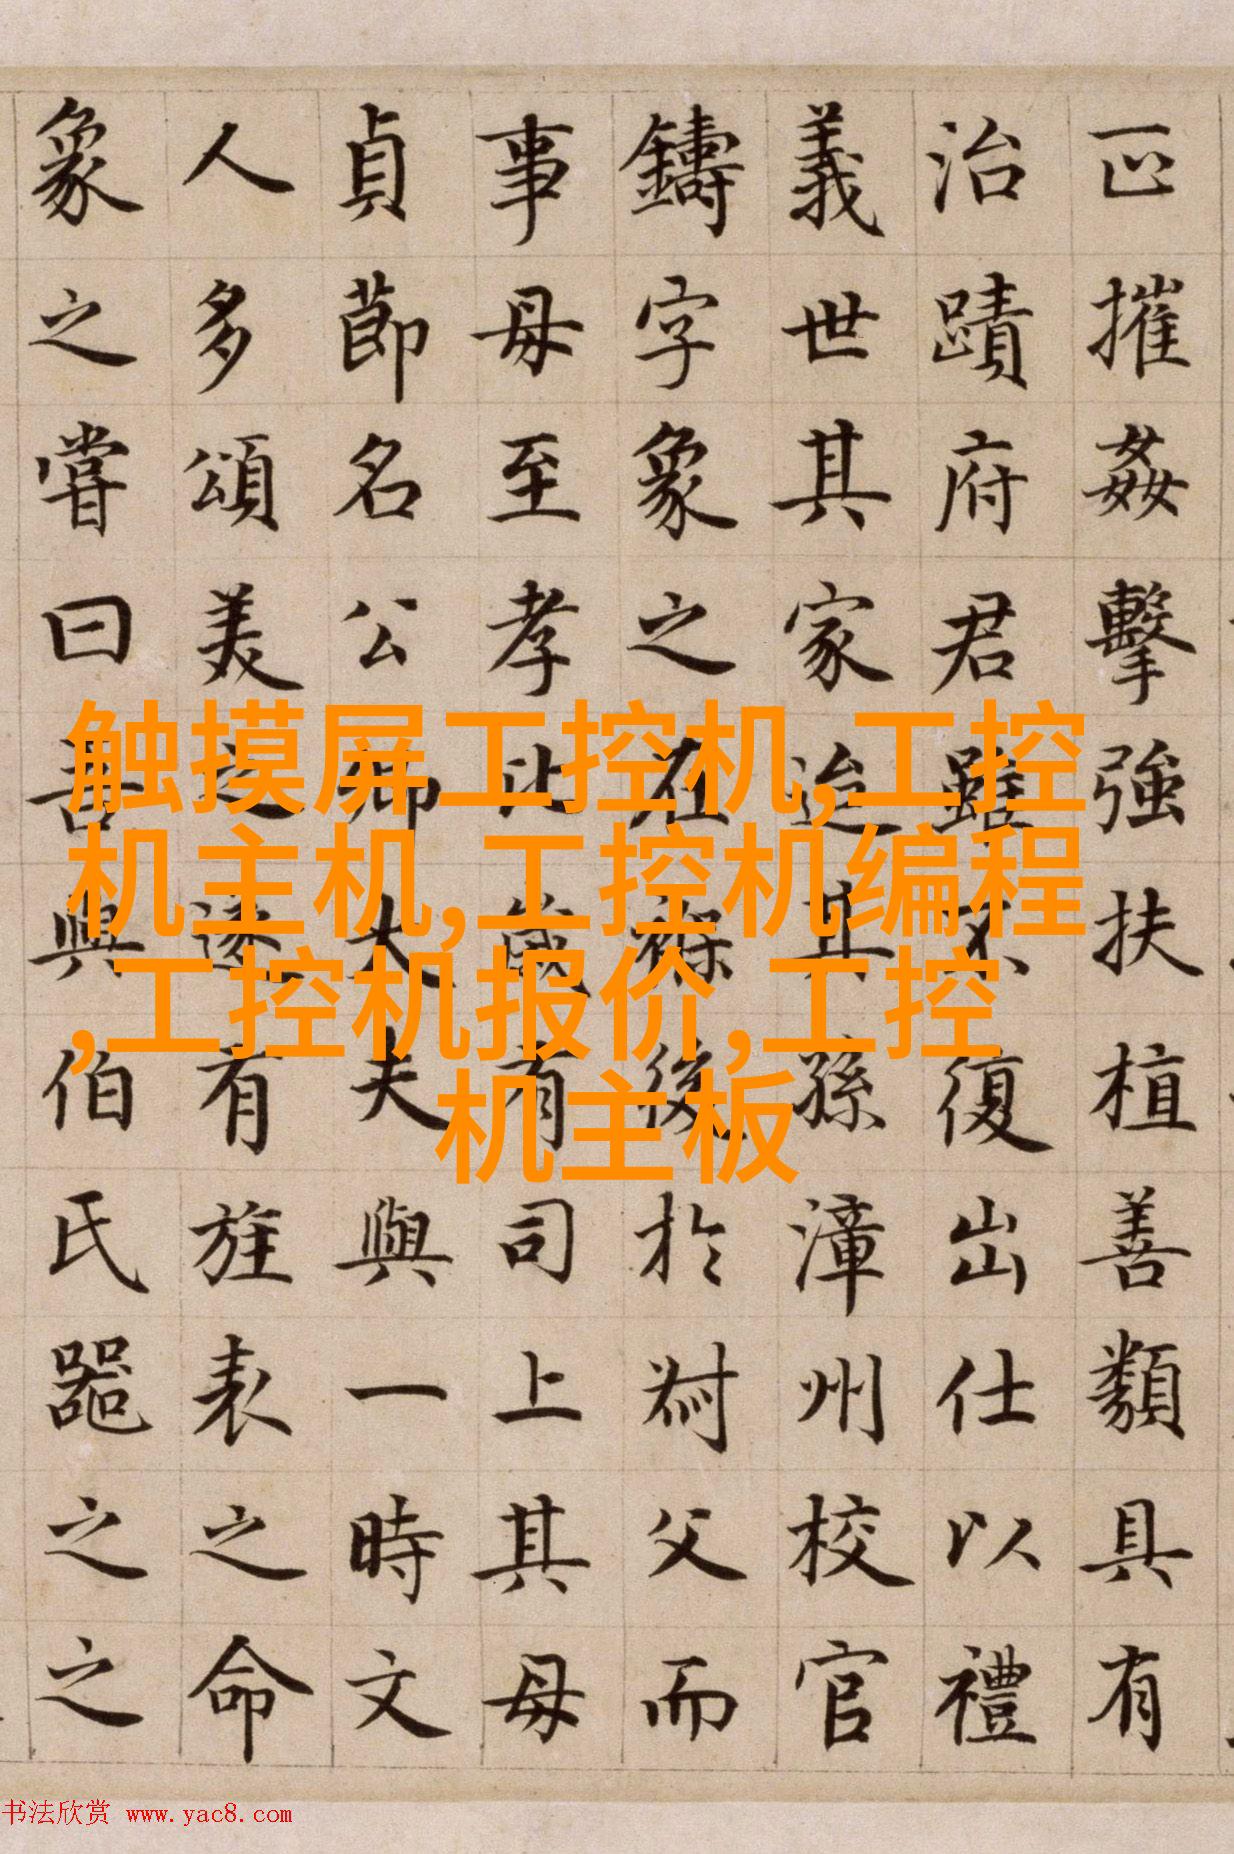 正摧姦擊強扶植善類具有
治蹟府君雖不復出仕以禮
義世其家迨其孫漳州校官
鑄字象之在褓後於父而
事母至孝比歲有司上其母
貞節名公卿大夫與一時文
人多頌美之遂有旌表之命
象之嘗曰吾與伯氏器之之
触摸屏工控机,工控
机主机,工控机编程
,工控机报价,工控
机主板
书法欣赏 www.yac8.com